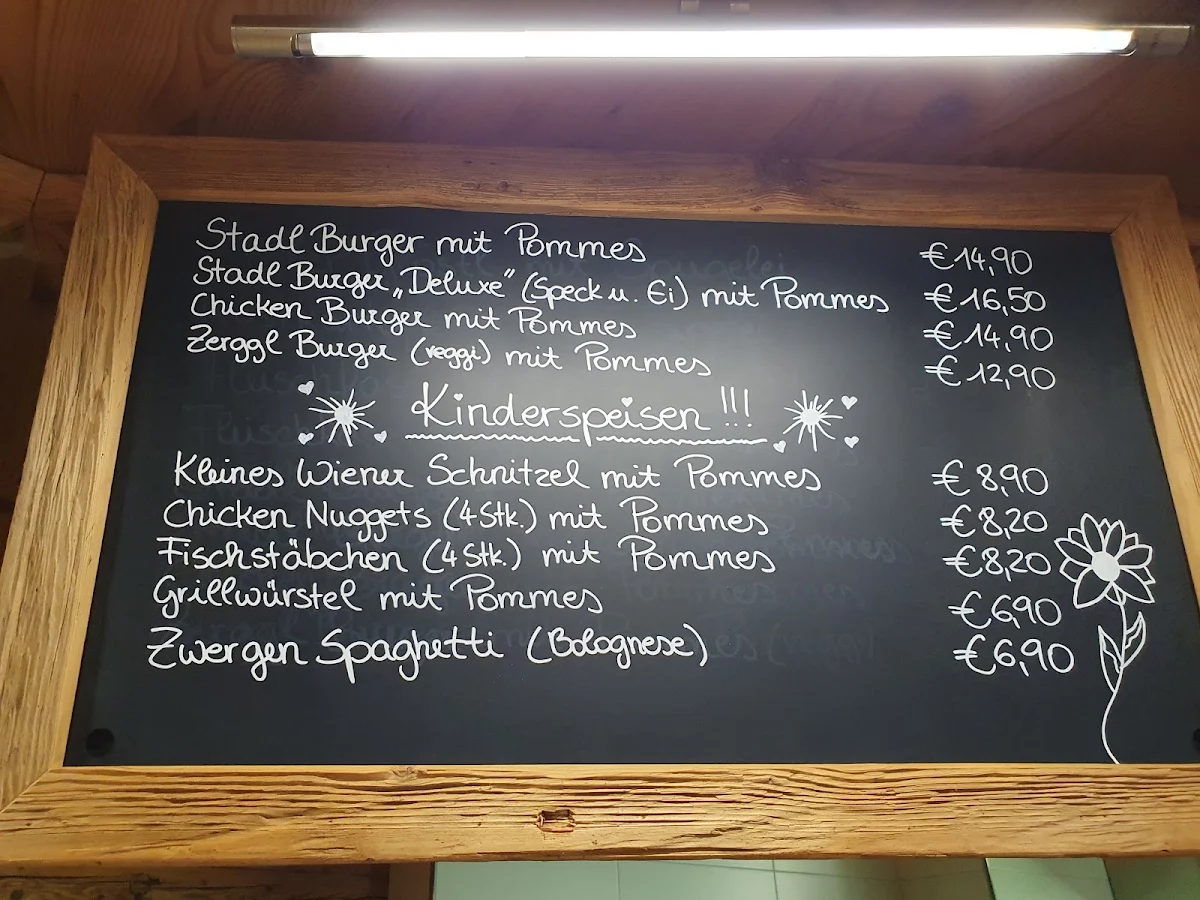 Stadl Burger mit Pommes €14,90
Stadl Burger „Deluxe“ (Speck u. Ei) mit Pommes €16,50
Chicken Burger mit Pommes €14,90
Zerggl Burger (veggi) mit Pommes €12,90
Kinderspeisen !!!
Kleines Wiener Schnitzel mit Pommes €8,90
Chicken Nuggets (4 Stk.) mit Pommes €8,20
Fischstäbchen (4 Stk.) mit Pommes €8,20
Grillwürstel mit Pommes €6,90
Zwergen Spaghetti (Bolognese) €6,90